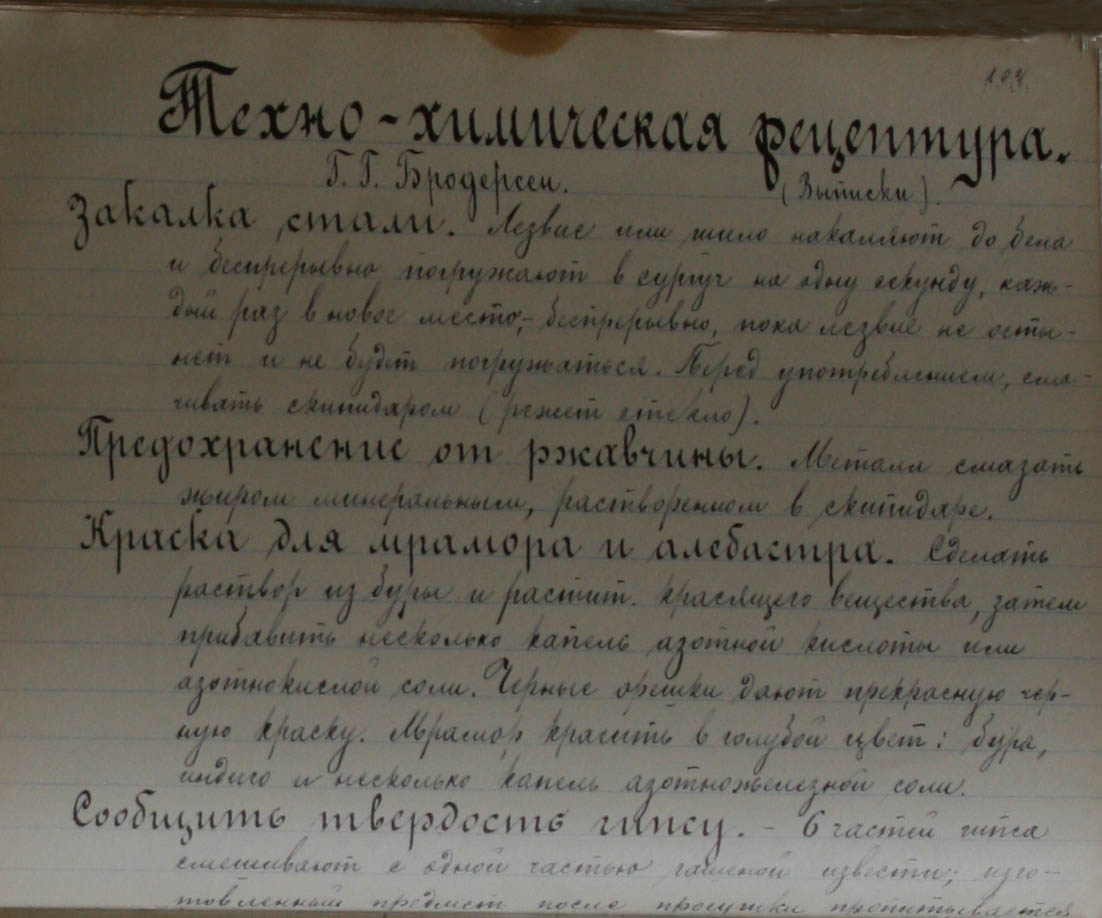 194.
Техно-химическая рецептура.
Г. Г. Бродерсен. (Выписки).
Закалка стали. Лезвие или шило накаляют до бела
и беспрерывно погружают в сургуч на одну секунду, каж-
дый раз в новое место,- беспрерывно, пока лезвие не осты-
нет и не будет погружаться. Перед употреблением, сма-
чивать скипидаром (режет стекло).
Предохранение от ржавчины. Металл смазать
жиром минеральным, растворенном в скипидаре.
Краска для мрамора и алебастра. Сделать
раствор из буры и растит. красящего вещества, затем
прибавить несколько капель азотной кислоты или
азотнокислой соли. Черные орешки дают прекрасную чер-
ную краску. Мрамор красить в голубой цвет: бура,
индиго и несколько капель азотножелезной соли.
Сообщить твердость гипсу. - 6 частей гипса
смешивают с одной частью гашеной извести; изго-
товленный предмет после просушки пропитывается